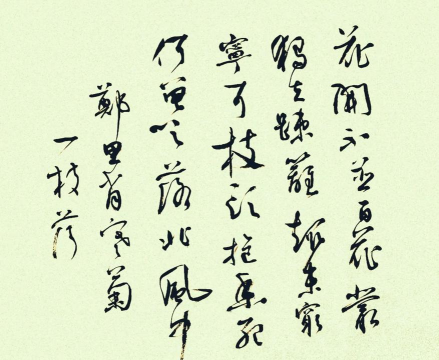 花開不並百花叢
獨立踈籬趣未窮
寧可枝頭抱香死
何曾吹落北風中
鄭思肖寒菊
一枝